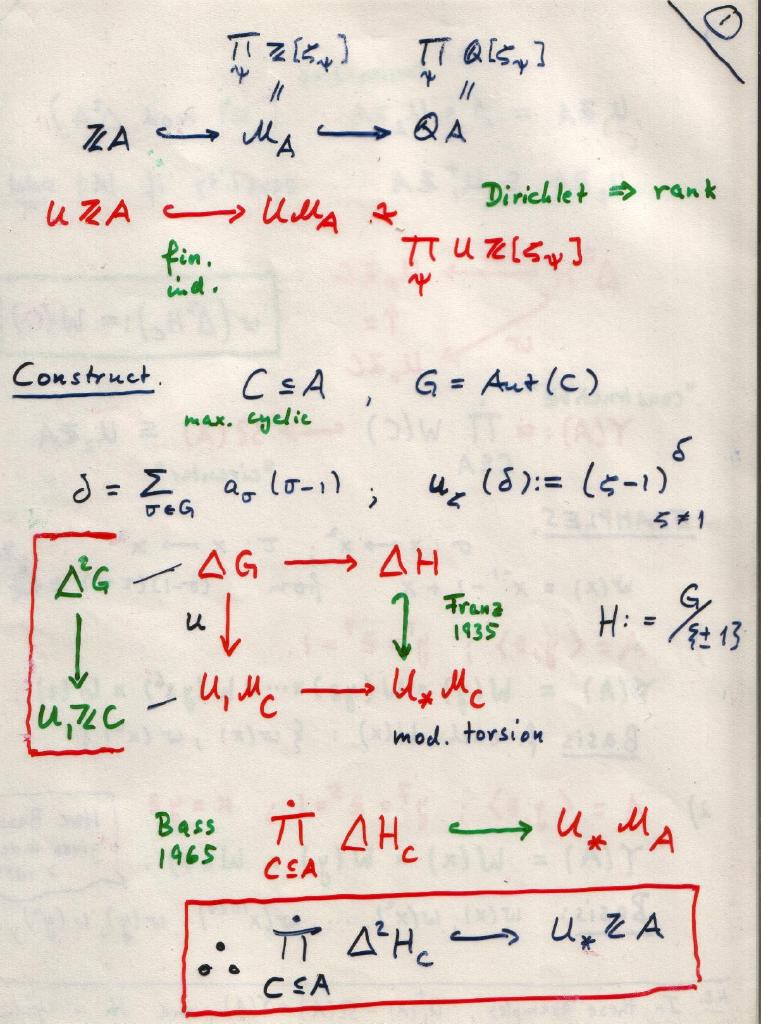 ①
∏_ψ ℤ[ζ_ψ]   ∏_ψ ℚ[ζ_ψ]
=   =
ℤA ↪ M_A ↪ ℚA
UℤA ↪ UM_A ≅ ∏_ψ Uℤ[ζ_ψ]
fin. ind.
Dirichlet ⇒ rank
Construct.   C ⊆ A , G = Aut(C)
max. cyclic
δ = Σ_{σ∈G} a_σ (σ-1) ; u_ζ(δ) := (ζ-1)^δ
ζ≠1
Δ²G — ΔG → ΔH
u   Franz 1935   H := G/{±1}
U₁ℤC — U₁M_C → U_*M_C
mod. torsion
Bass 1965   ∏̇_{C⊆A} ΔH_C ↪ U_*M_A
∴ ∏̇_{C⊆A} Δ²H_C ↪ U_*ℤA